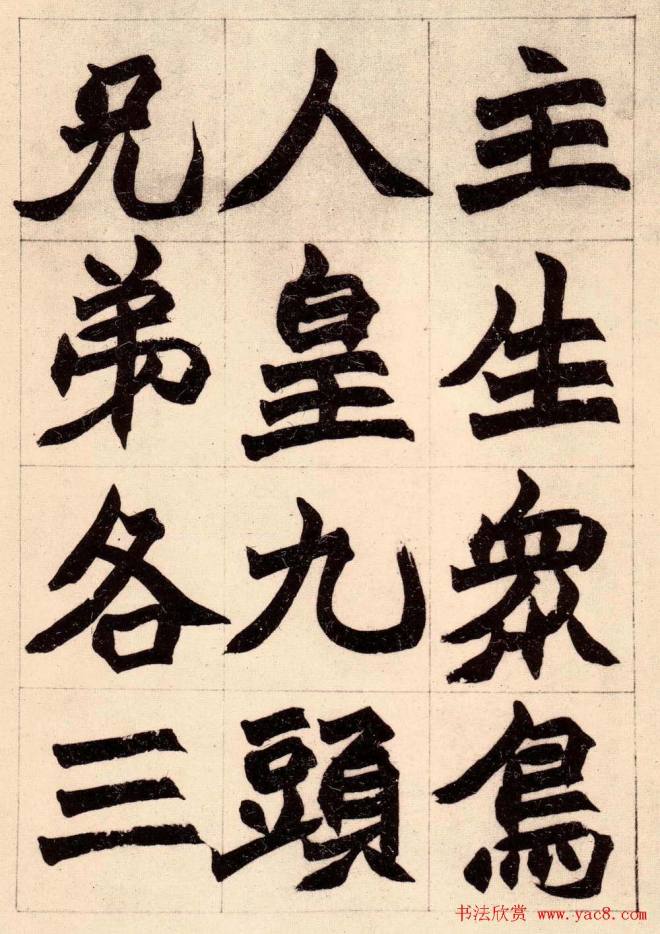 主生衆鳥
人皇九頭
兄弟各三
书法欣赏 www.yac8.com